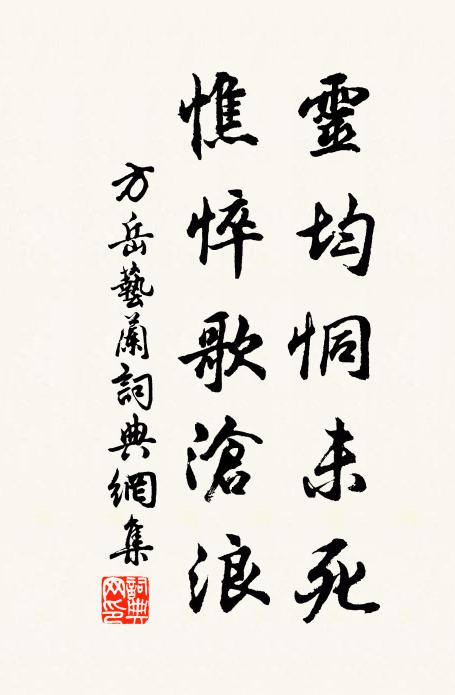 靈均恫未死
憔悴歌滄浪
方岳藝蘭詞典網集
詞典網印